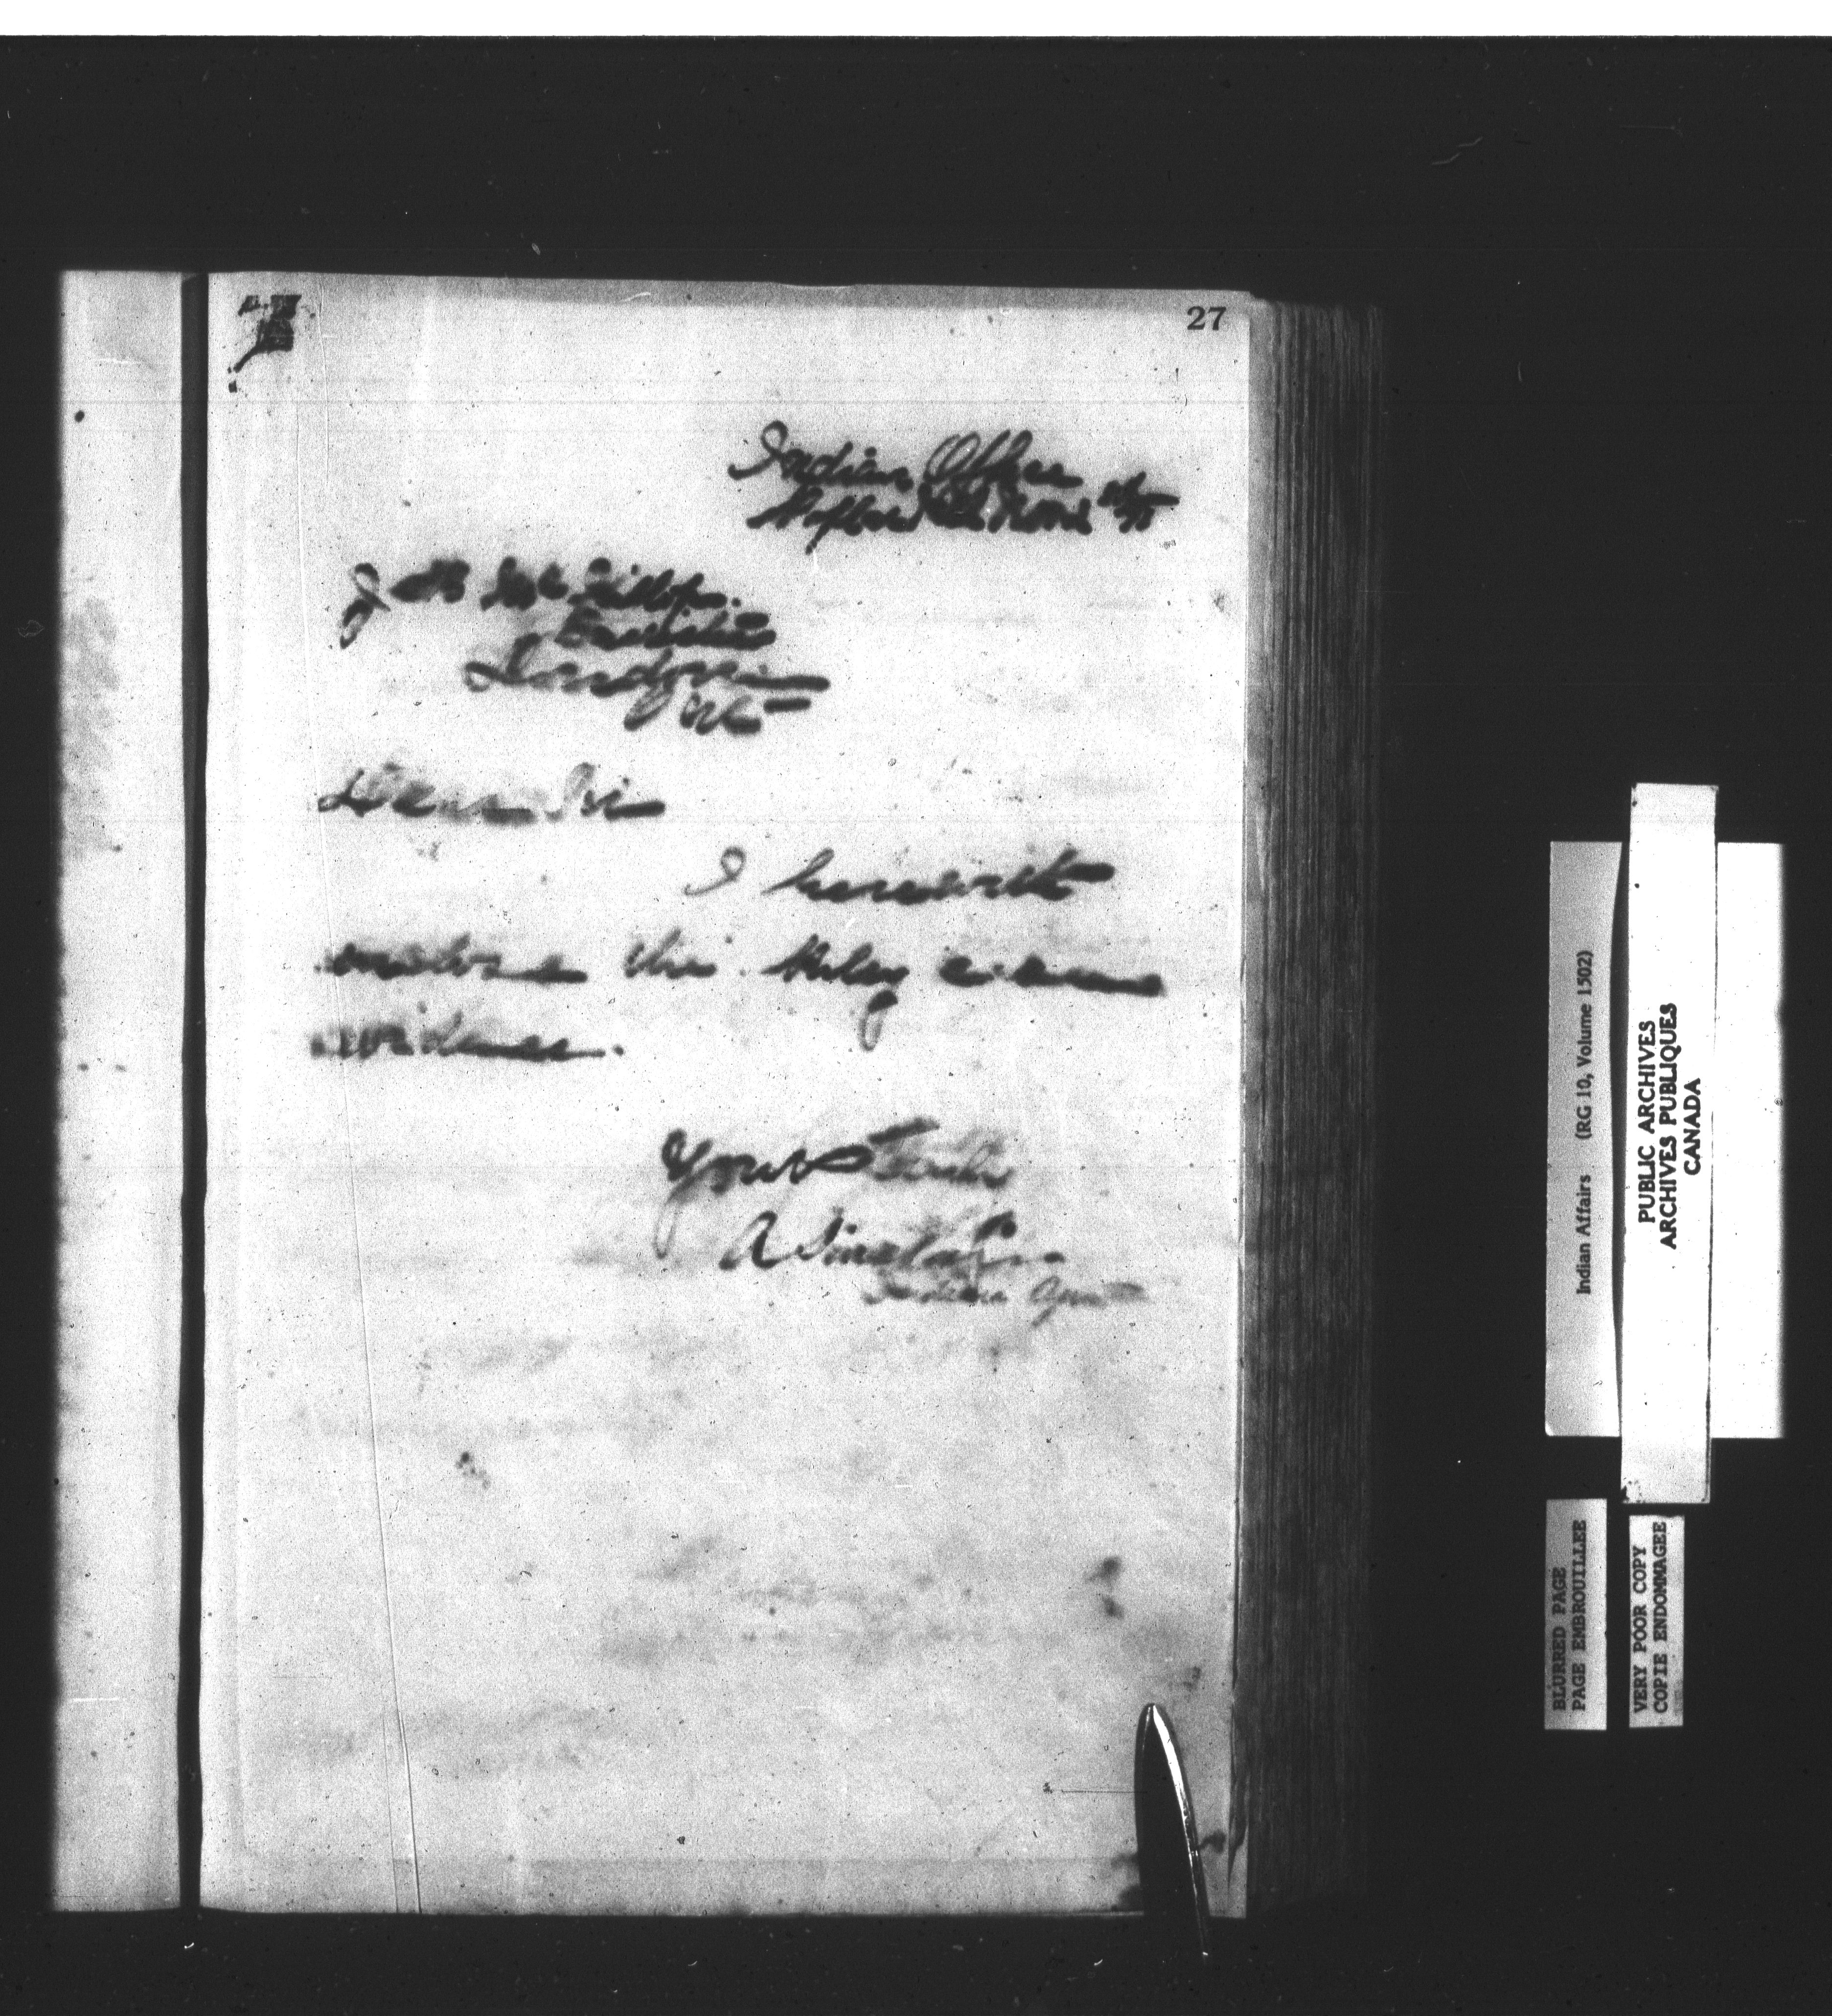 27
Indian Office
J McKillop
Barrister
London
Ont
Dear Sir
I herewith
enclose the
evidence.
Yours truly
A Sinclair
Indian Agent
Indian Affairs (RG 10, Volume 1502)
PUBLIC ARCHIVES
ARCHIVES PUBLIQUES
CANADA
BLURRED PAGE
PAGE EMBROUILLEE
VERY POOR COPY
COPIE ENDOMMAGEE